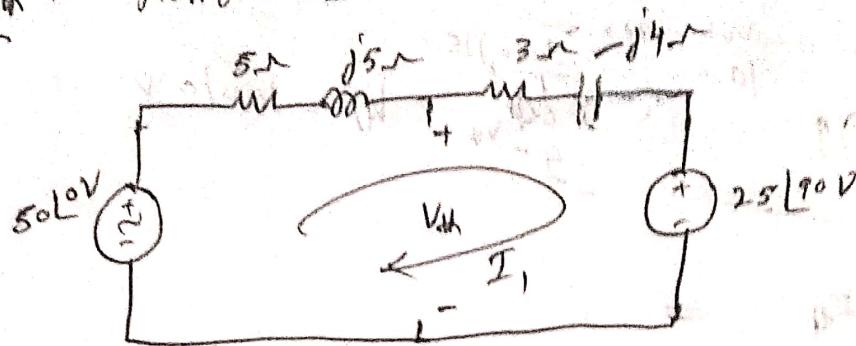 5Ω j5Ω 3Ω -j4Ω
+
50∠0V + - Vth + - 25∠90V
I₁
-